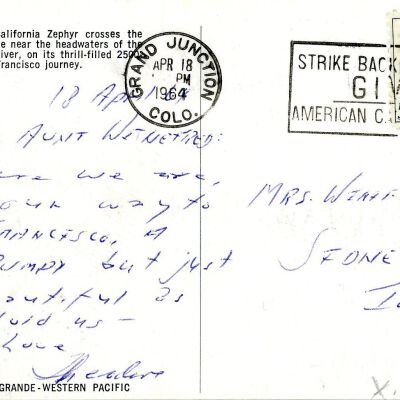 alifornia Zephyr crosses the
e near the headwaters of the
iver, on its thrill-filled 2500
rancisco journey.
GRAND JUNCTION
APR 18
PM
1964
COLO.
STRIKE BACK
GIV
AMERICAN C
18 Apr 64
AUNT WINEFRED:
ere we are,
our way to
FRANCISCO, A
bumpy but just
eautiful as
told us —
Love
Theodore
MRS. WINF
SIDNE
IO
GRANDE-WESTERN PACIFIC